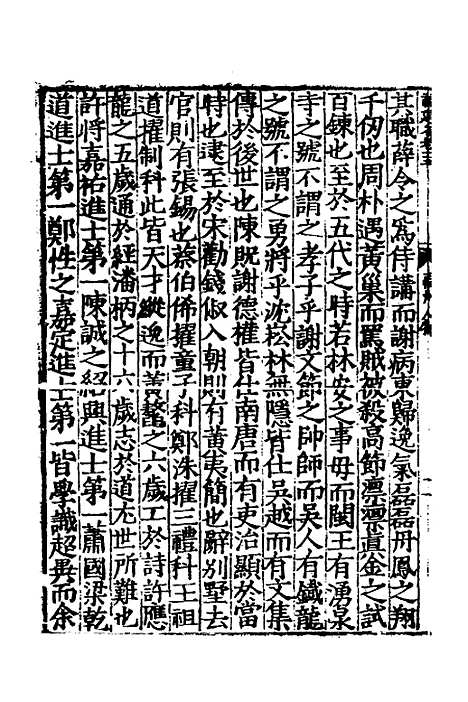 其職薛令之爲侍講而謝病東歸逸氣磊磊丹鳳之翔
千仞也周朴遇黃巢而罵賊被殺高節凛凛眞金之試
百鍊也至於五代之時若林安之事母而閩王有湧泉
寺之號不謂之孝子乎謝文節之帥師而吳人有鐵龍
之號不謂之勇將乎沈崧林無隱皆仕吳越而有文集
傳於後世也陳貺謝德權皆仕南唐而有吏治顯於當
時也逮至於宋勸錢俶入朝則有黃夷簡也辭別墅去
官則有張錫也蔡伯俙擢童子科鄭洙擢三禮科王祖
道擢制科此皆天才縱逸而黃鰲之六歲工於詩許應
龍之五歲通於經潘柄之十六歲志於道尤世所難也
許將嘉祐進士第一陳誠之紹興進士第一蕭國梁乾
道進士第一鄭性之嘉定進士第一皆學識超異而余